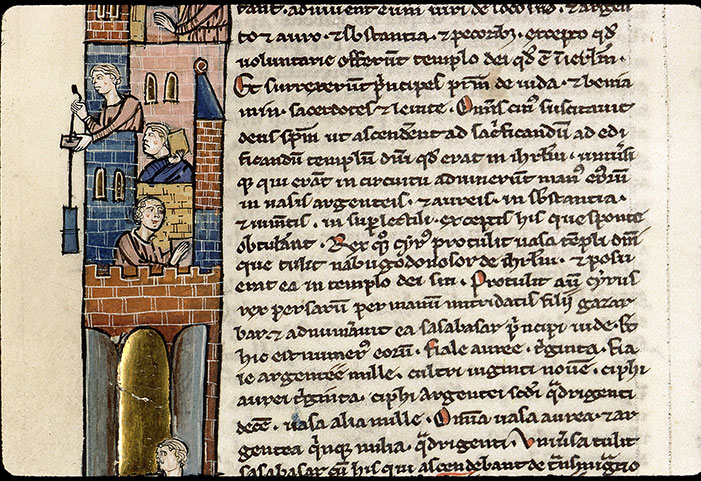 tant. adiuvent eum viri de loco suo. & argen
to & auro. & sbstantia. & pecorib;. excepto qd
voluntarie offerunt templo dei qd ē ī ierlm̄.
Et surrexerunt p̄ncipes pr̄m de iuda. & benia
min. sacerdotes & levite. Om̄s cuī suscitavit
deus sp̄m ut ascenderent ad sac̄ficandum ad edi
ficandum templum dn̄i qd erat in ihrlm̄. univ̄si
q; qui erant in circuitu adiuverunt man⁹ eorum
in vasis argenteis. & aureis. in sbstantia.
& iumentis. in suplectili. exceptis his que sponte
obtulerant. Rex q; cyr⁹ protulit vasa templi dn̄i
que tulit nabugodonosor de ihrlm̄. & posu
erat ea in templo dei sui. Protulit aū cyrus
rex persarum per manum mitridatis filii gazar
bar. & adnumeravit ea sasabasar p̄ncipi iude. Et
hic est numer⁹ eorum. fiale auree. t̄ginta. fia
le argentee mille. cultri viginti novē. ciphi
aurei t̄ginta. ciphi argentei scd̄i q̄drigenti
decē. vasa alia mille. Om̄ia vasa aurea. & ar
gentea q̄nq; milia. q̄drigenti. univ̄sa tulit
sasabasar cū his qui ascendebant de t̄nsmig̃tio